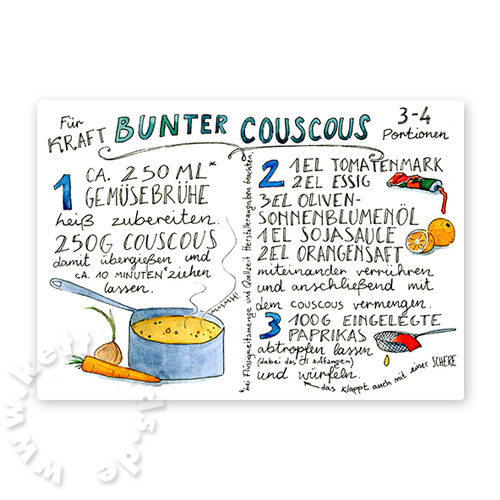 Für KRAFT
BUNTER COUSCOUS
3-4
Portionen
1 CA. 250 ML*
GEMÜSEBRÜHE
heiß zubereiten.
250G COUSCOUS
damit übergießen und
CA. 10 MINUTEN* ziehen
lassen.
mmmhh
* bei Flüssigkeitsmenge und Quellzeit Herstellerangaben beachten
2 1EL TOMATENMARK
2EL ESSIG
3EL OLIVEN-
SONNENBLUMENÖL
1EL SOJASAUCE
2EL ORANGENSAFT
miteinander verrühren
und anschließend mit
dem COUSCOUS vermengen.
3 100G EINGELEGTE
PAPRIKAS
abtropfen lassen
(dabei das Öl auffangen)
und würfeln.
das klappt auch mit einer SCHERE